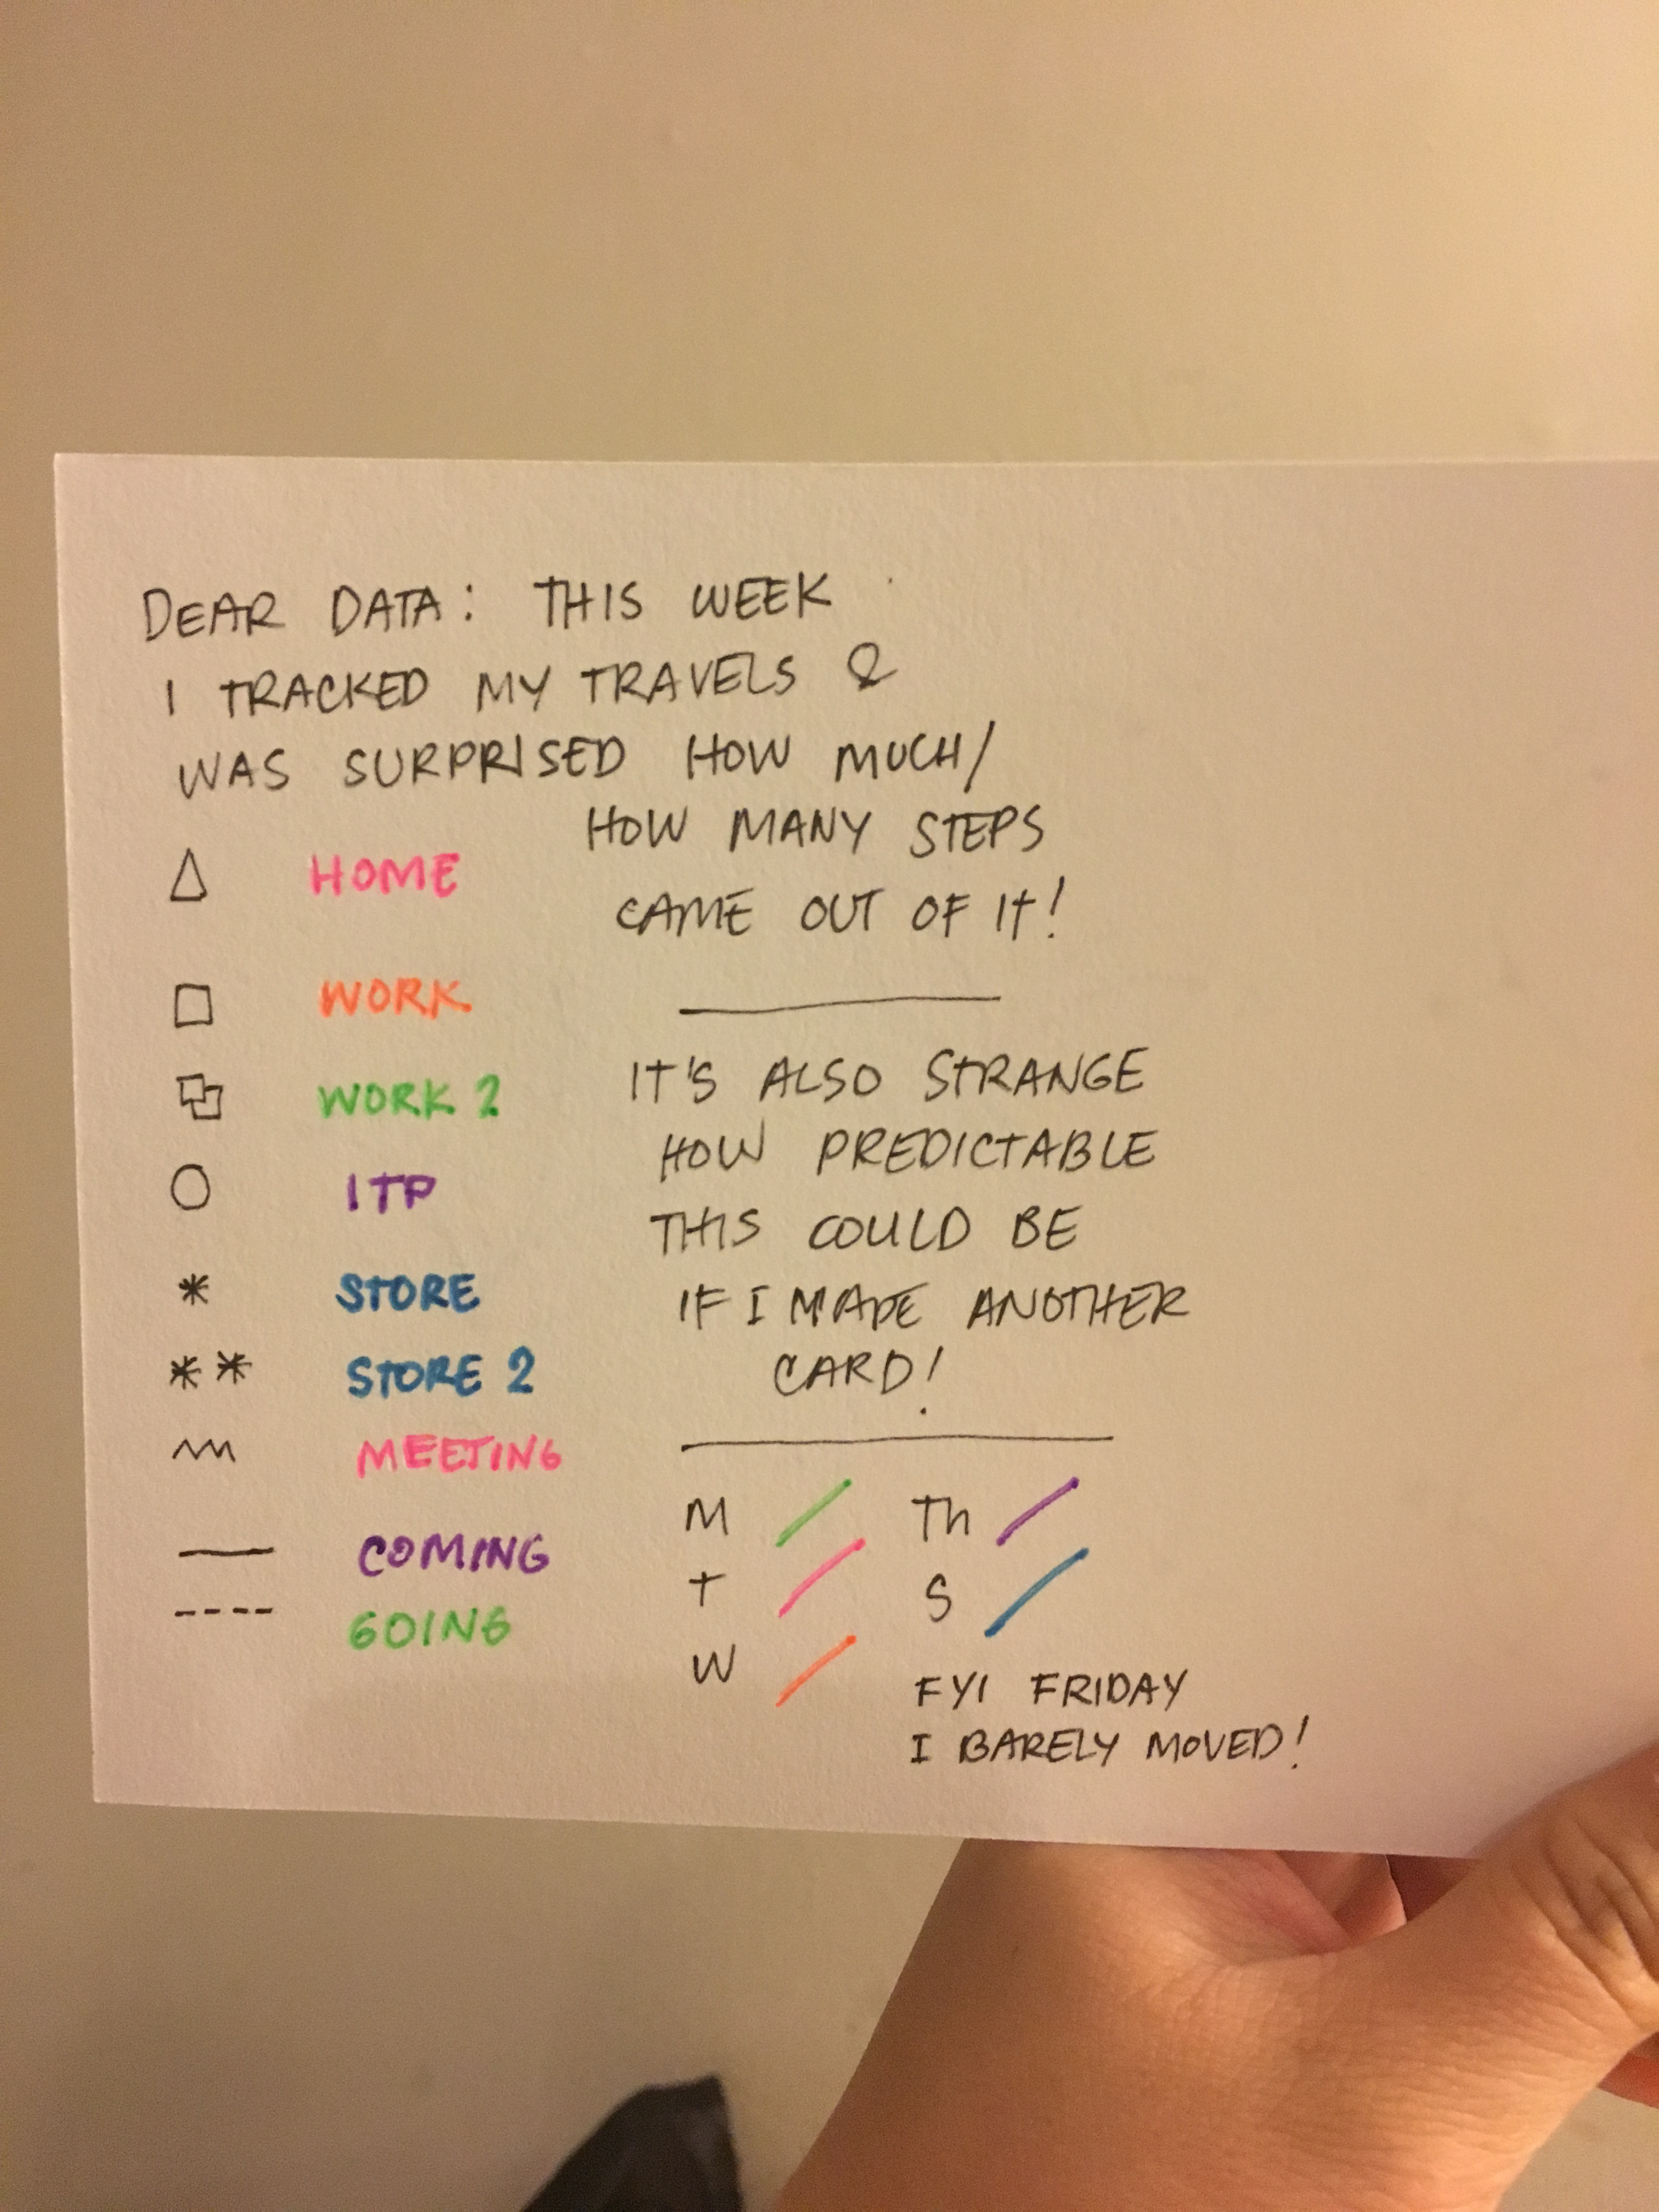 DEAR DATA: THIS WEEK
I TRACKED MY TRAVELS &
WAS SURPRISED HOW MUCH/
HOW MANY STEPS
CAME OUT OF IT!
HOME
WORK
WORK 2
ITP
STORE
STORE 2
MEETING
COMING
GOING
IT'S ALSO STRANGE
HOW PREDICTABLE
THIS COULD BE
IF I MADE ANOTHER
CARD!
M Th
T S
W
FYI FRIDAY
I BARELY MOVED!